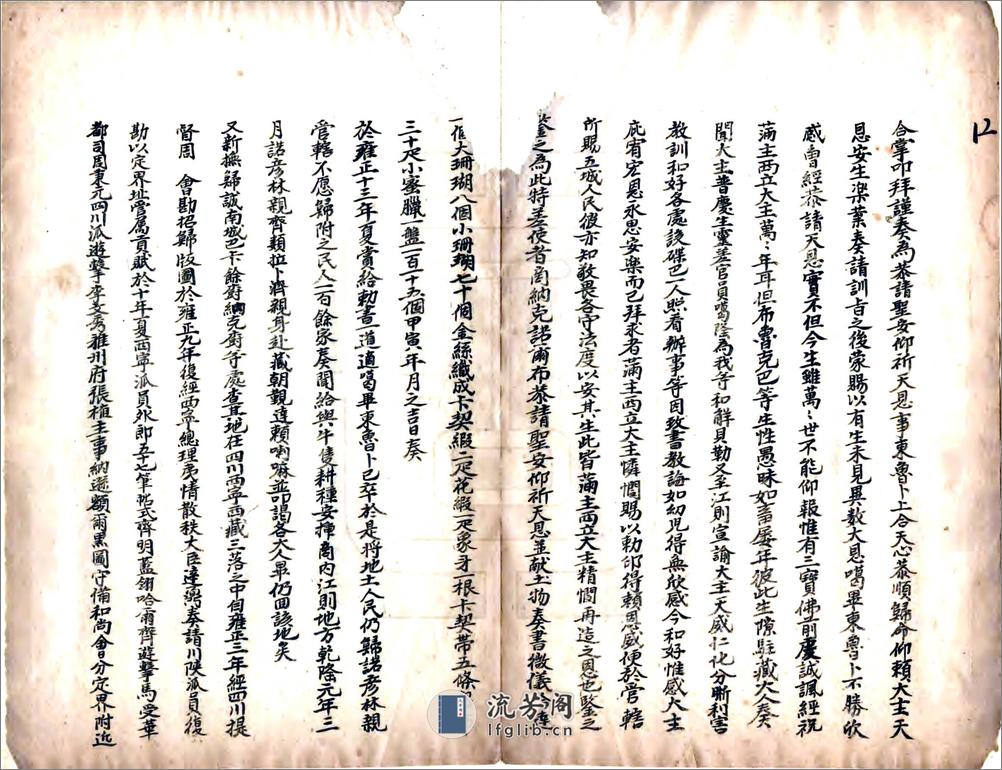 12
合掌叩拜謹奏為恭請聖安仰祈天恩事東魯卜上合天心恭順歸命仰賴大士天
恩安生楽業奏請訓㫖之後蒙賜以有生未見異数大恩噶畢東魯卜不勝欣
感曾經恭請天恩實不但今生雖萬〻世不能仰報惟有三寶佛前慶誠諷經祝
滿主两立大主萬〻年耳但布魯克巴等生性愚昧如畜屡年彼此生隙駐藏大人奏
聞大主普慶生靈差官員噶隆為我等和解貝勒又至江則宣諭大主天威仁化分晰利害
教訓和好各處後碟巴一人照看辦事等因致書教誨如幼児得無欣感今和好惟感大主
庇宥宏恩永思安楽而已拜求者滿主两立大主憐憫賜以勅印得賴恩威便於管轄
所賜五城人民彼亦知敬畏各守法度以安其生此皆滿主两立大主精憫再造之恩也鋻之
鋻之為此特差使者岡納克諾爾布恭請聖安仰祈天恩並献土物奏書微儀
一個大珊瑚八個小珊瑚七十個金絲織成卡契縀二疋花縀一疋象牙一根卡契帶五條
三十疋小蜜臘一盤一百十五個甲寅年月之吉日奏
於雍正十三年夏賞給勅書一道適噶畢東魯卜已卒於是将地土人民仍歸諾彦林親
管轄不愿歸附之民人一百餘家奏聞給與牛隻耕種安揷商内江則地方乾隆元年三
月諾彦林親齊類拉卜濟親身赴藏朝覲達賴喇嘛並叩謁各大人畢仍回該地矣
又新撫歸誠南城巴卡餘尉納克尉等處查其地在四川西寧西藏三落之中間雍正三年經四川提
督周　會勘招歸版圖於雍正九年後經西寧總理夷情散秩大臣達鼐奏請川陕派員復
勘以定界址管属貢賦於十年夏西寧派員外郎五七筆帖式齊明蓋翎哈爾齊遊擊馬受華
都司周秉元四川派遊擊李文秀雅州府張植主事納遜額爾黒圖守備和尚會分定界附近
流芳阁
lfglib.com